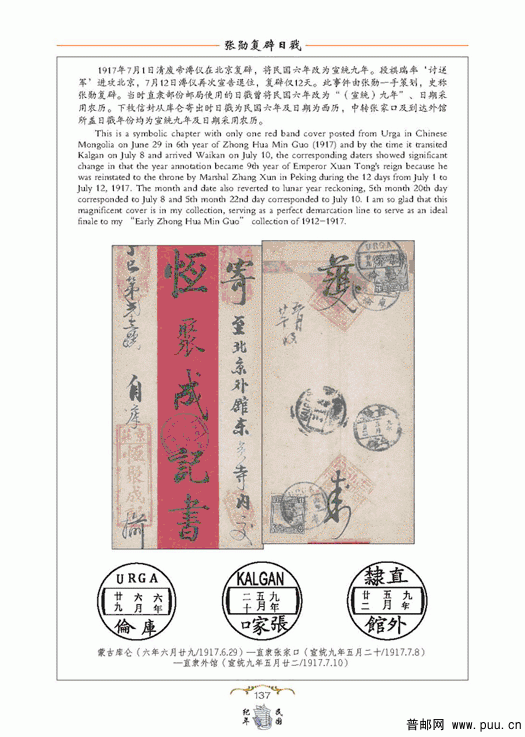 张勋复辟日戳
1917年7月1日清废帝溥仪在北京复辟，将民国六年改为宣统九年。段祺瑞率‘讨逆
军’进攻北京，7月12日溥仪再次宣告退位，复辟仅12天。此事件由张勋一手策划，史称
张勋复辟。当时直隶部份邮局使用的日戳曾将民国六年改为“（宣统）九年”、日期采
用农历。下枚信封从库仑寄出时日戳为民国六年及日期为西历，中转张家口及到达外馆
所盖日戳年份均为宣统九年及日期采用农历。
This is a symbolic chapter with only one red band cover posted from Urga in Chinese
Mongolia on June 29 in 6th year of Zhong Hua Min Guo (1917) and by the time it transited
Kalgan on July 8 and arrived Waikan on July 10, the corresponding daters showed significant
change in that the year annotation became 9th year of Emperor Xuan Tong's reign because he
was reinstated to the throne by Marshal Zhang Xun in Peking during the 12 days from July 1 to
July 12, 1917. The month and date also reverted to lunar year reckoning, 5th month 20th day
corresponded to July 8 and 5th month 22nd day corresponded to July 10. I am so glad that this
magnificent cover is in my collection, serving as a perfect demarcation line to serve as an ideal
finale to my “Early Zhong Hua Min Guo” collection of 1912-1917.
自库
恆聚成記書
寄
至北京外館東
寺内
URGA
URGA
廿九 六月 六年
庫倫
KALGAN
二十 五月 九年
張家口
直隸
廿二 五月 九年
外館
蒙古库仑（六年六月廿九/1917.6.29）—直隶张家口（宣统九年五月二十/1917.7.8）
—直隶外馆（宣统九年五月廿二/1917.7.10）
137
民国
纪年
普邮网 www.puu.cn